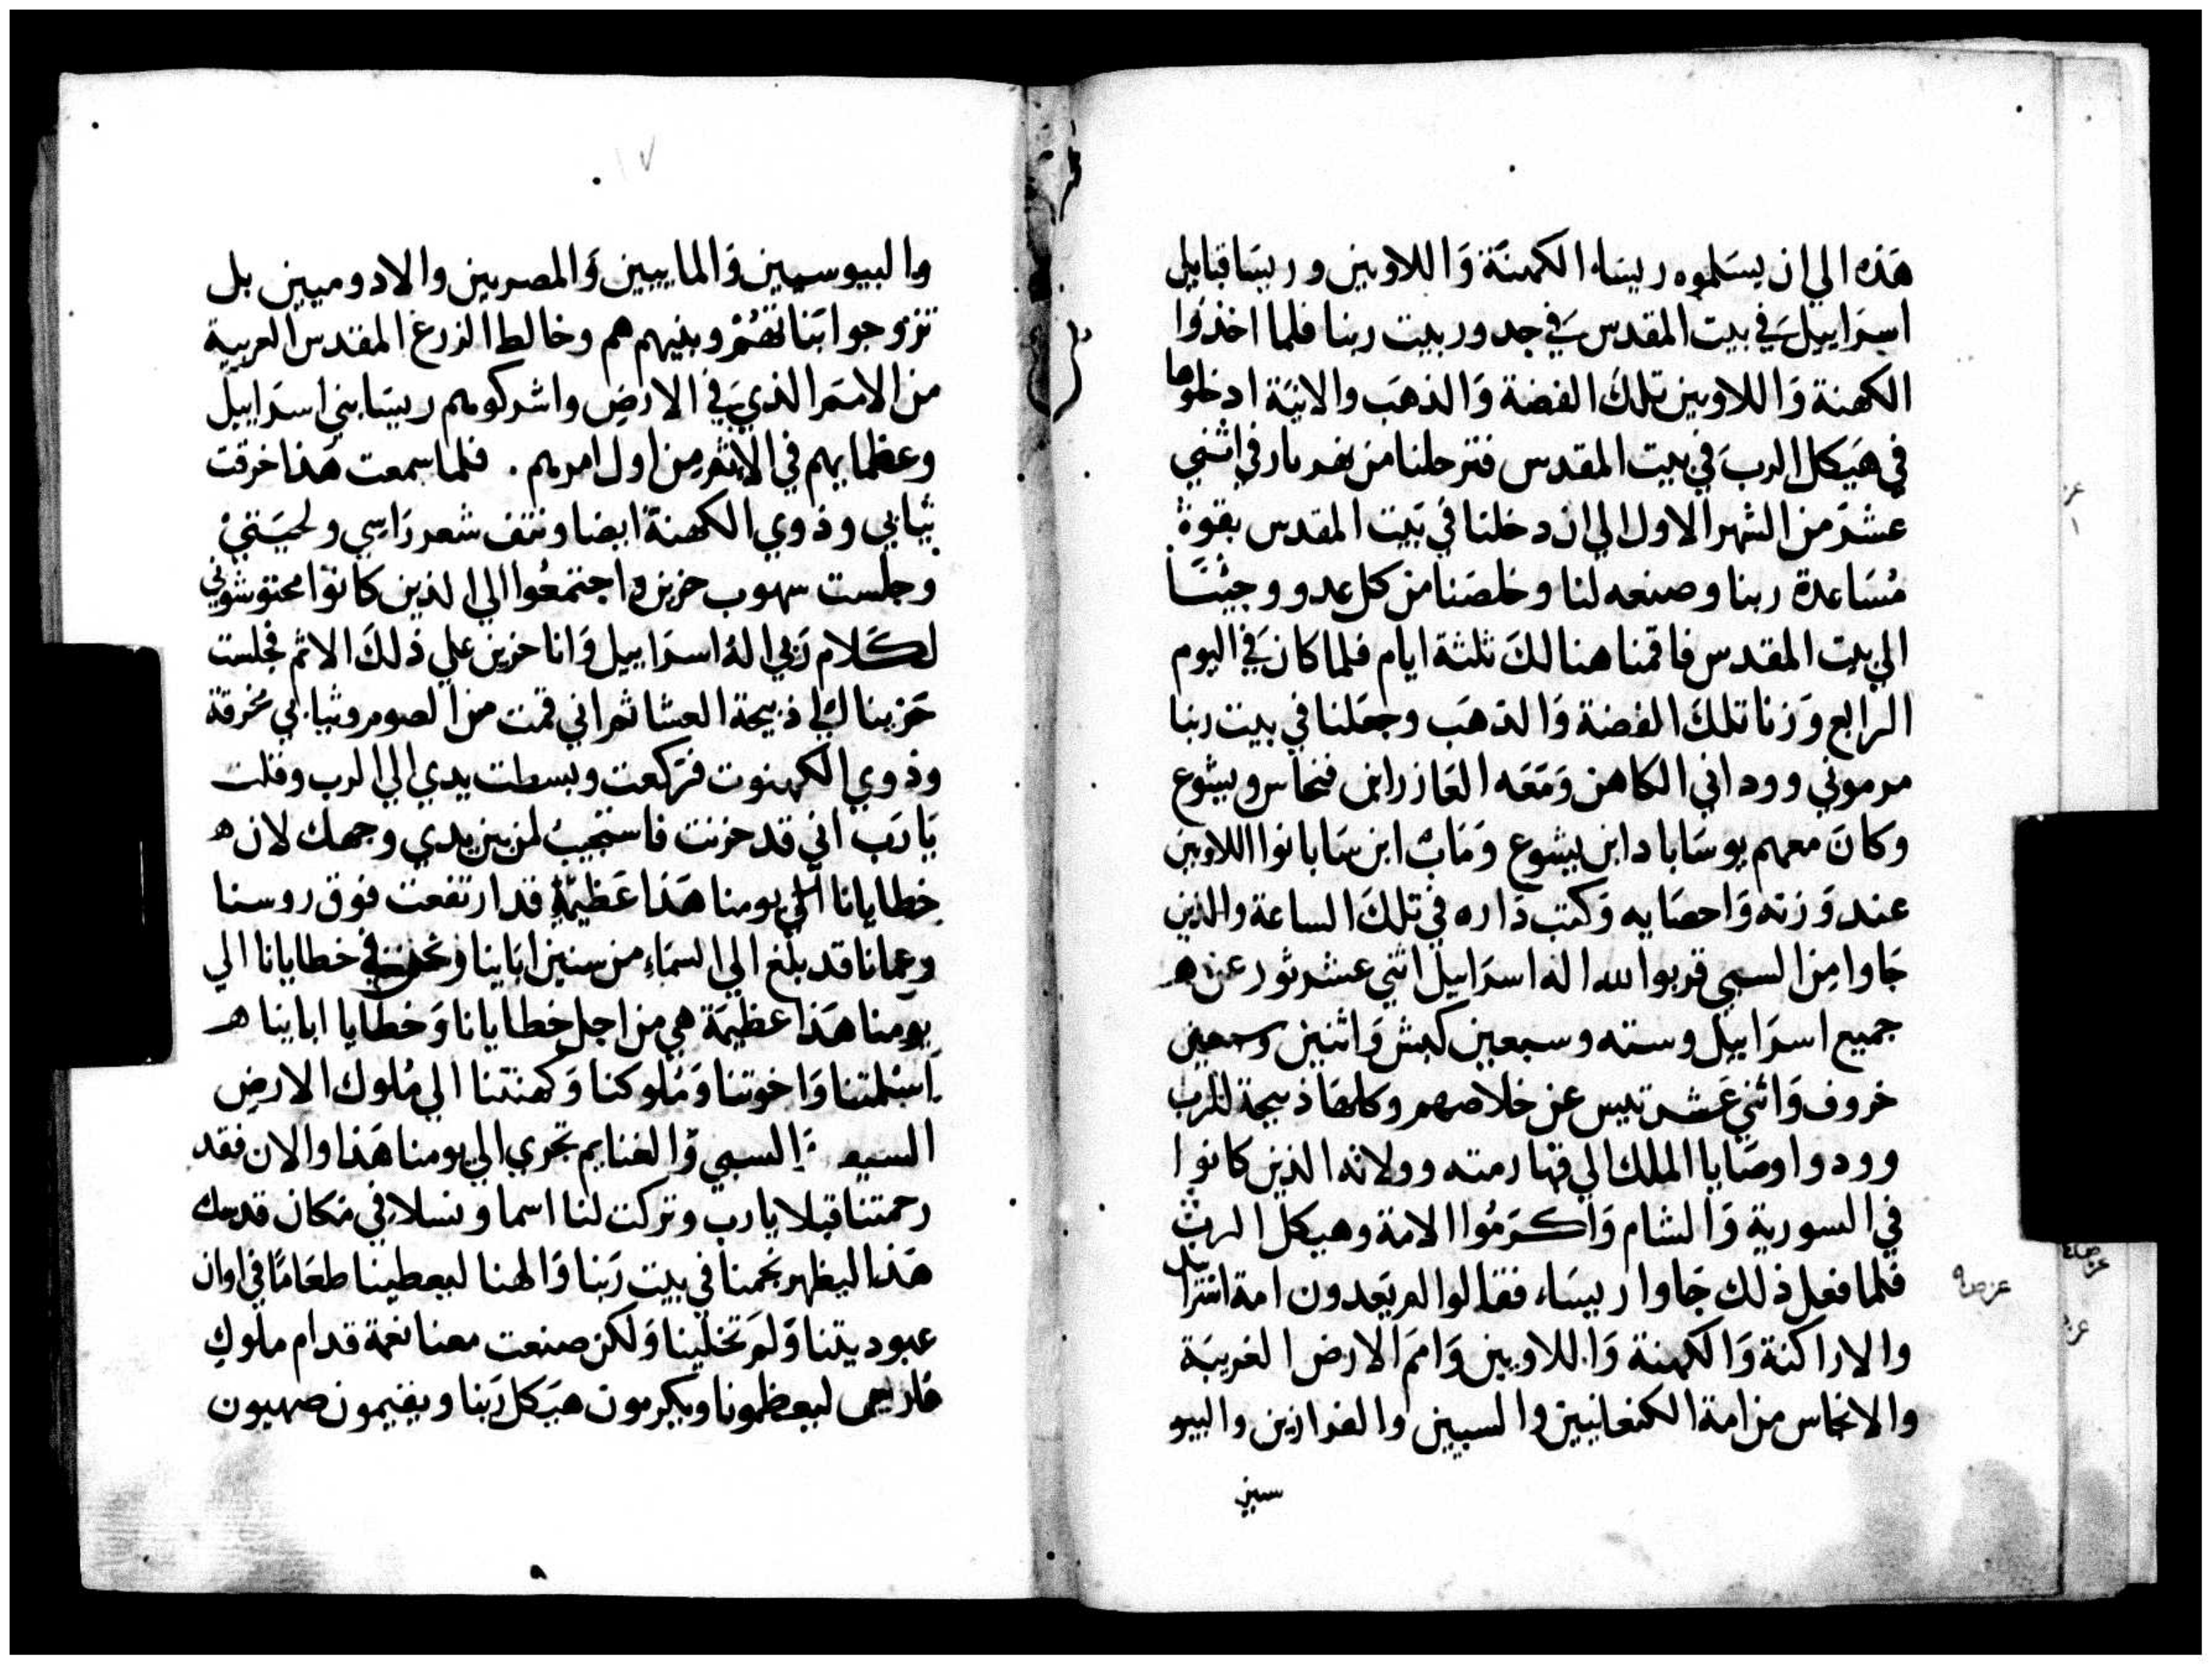 هذه الي ان يسلموه ريسا الكهنة واللاويين وريسا قبايل
اسراييل في بيت المقدس في جدور بيت ربنا فلما اخذوا
الكهنة واللاويين تلك الفضة والذهب والانية ادخلوها
في هيكل الرب في بيت المقدس فترحلنا من نهر بار في اثني
عشر من الشهر الاول الي ان دخلنا في بيت المقدس بقوة
مساعدة ربنا وصنعه لنا وخلصنا من كل عدو وجينا
الي بيت المقدس فاقمنا هنالك ثلثة ايام فلما كان في اليوم
الرابع وزنا تلك الفضة والذهب وجعلنا في بيت ربنا
مرموني ووداني الكاهن ومعه العازر ابن فنحاس ويشوع
وكان معهم يوساباد ابن يشوع ومات ابن سابانوا اللاويين
عند وزنه واحصايه وكتب داره في تلك الساعة والذين
جاوا من السبي قربوا لله اله اسراييل اثني عشر ثور عن
جميع اسراييل وسته وسبعين كبش واثنين وسبعين
خروف واثني عشر تيس عن خلاصهم وكلها ذبيحة للرب
وودوا وصايا الملك الي قهارمته وولاته الذين كانوا
في السورية والشام واكرموا الامة وهيكل الرب
فلما فعل ذلك جاوا ريسا فقالوا لم يبعدون امة اسراييل
والاراكنة والكهنة واللاويين وامم الارض الغريبة
والانجاس من امة الكنعانيين والسبيين والفرازين واليبو
سين
عن صه
١٧
واليبوسيين والماببيين والمصريين والادوميين بل
تزوجوا بناتهم وبنيهم هم وخالط الزرع المقدس الغريبة
من الامم الذي في الارض واشركوهم ريسا بني اسراييل
وعظمايهم في الاثم من اول امرهم. فلما سمعت هذا خرقت
ثيابي وذوي الكهنة ايضا ونتف شعر راسي ولحيتي
وجلست سهوب حزين واجتمعوا الي الذين كانوا محتوشوني
لكلام ربي اله اسراييل وانا حزين علي ذلك الاثم فجلست
حزينا الي ذبيحة العشا ثم اني قمت من الصوم وثيابي مخرقة
وذوي الكهنوت فركعت وبسطت يدي الي الرب وقلت
يا رب اني قد حزنت فاستجيب لمن بين يدي وجهك لان
خطايانا الي يومنا هذا عظيمة قد ارتفعت فوق روسنا
وعمانا قد بلغ الي السماء من سنين اباينا ونحن في خطايانا الي
يومنا هذا عظيمة هي من اجل خطايانا وخطايا اباينا
اسلمتنا واخوتنا وملوكنا وكهنتنا الي ملوك الارض
السبي والغنايم تجري الي يومنا هذا والان فقد
رحمتنا قبلا يا رب وتركت لنا اسما ونسلا في مكان قدسك
هذا ليظهر نجمنا في بيت ربنا والهنا ليعطينا طعاما في اوان
عبوديتنا ولم تخلينا ولكن صنعت معنا نعمة قدام ملوك
فارس ليعظمونا ويكرمون هيكل ربنا ويقيمون صهيون